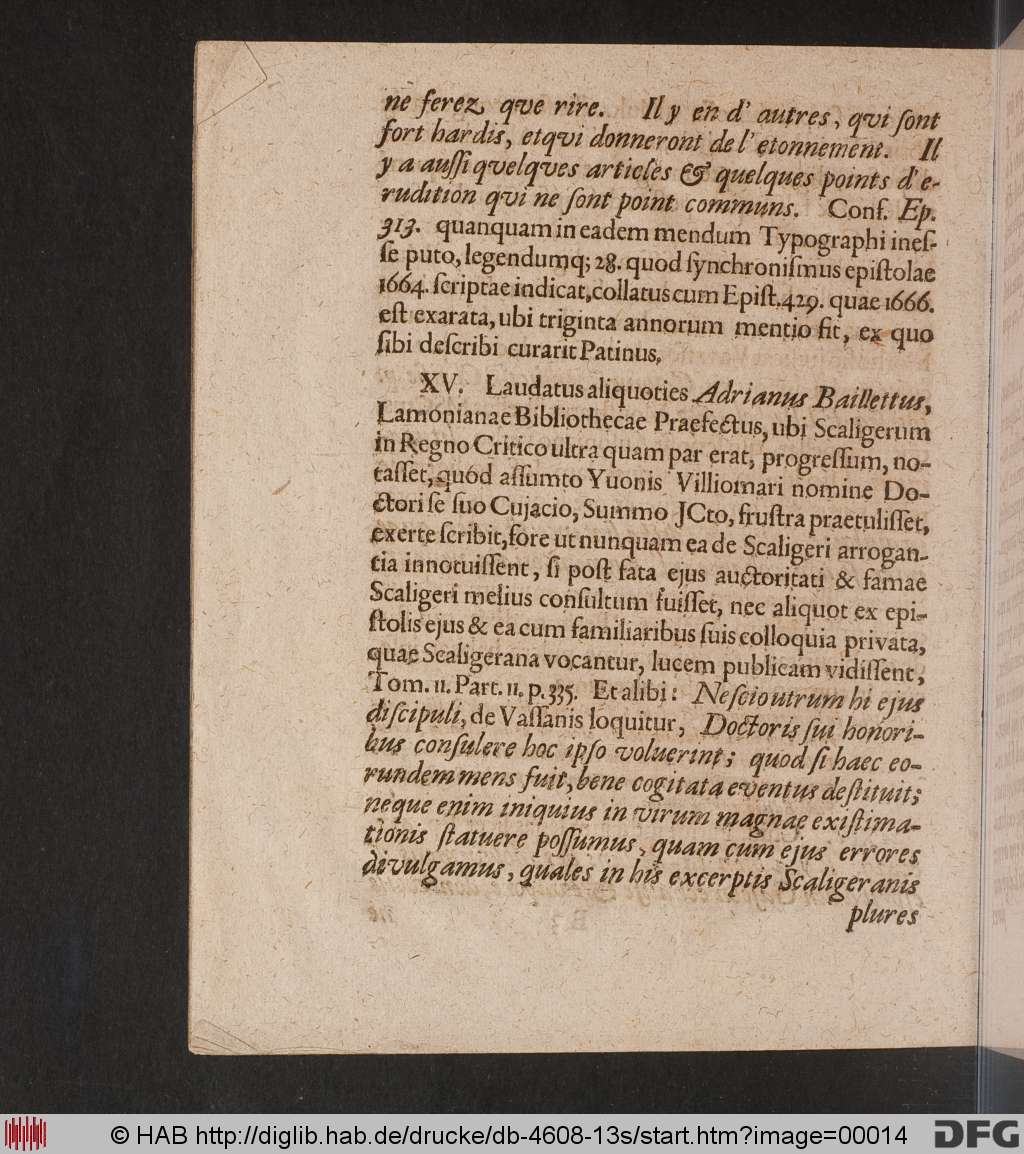 ne ferez qve rire. Il y en d' autres, qvi ſont
fort hardis, etqvi donneront de l' etonnement. Il
y a auſſi quelqves articles & quelques points d'e-
rudition qvi ne ſont point communs. Conf. Ep.
313. quanquam in eadem mendum Typographi ineſ-
ſe puto, legendumq; 28. quod ſynchroniſmus epiſtolae
1664. ſcriptae indicat, collatus cum Epiſt. 429. quae 1666.
eſt exarata, ubi triginta annorum mentio fit, ex quo
ſibi deſcribi curarit Patinus.
XV. Laudatus aliquoties Adrianus Baillettus,
Lamonianae Bibliothecae Praefectus, ubi Scaligerum
in Regno Critico ultra quam par erat, progreſſum, no-
taſſet, quód aſſumto Yuonis Villiomari nomine Do-
ctori ſe ſuo Cujacio, Summo JCto, fruſtra praetuliſſet,
exerte ſcribit, fore ut nunquam ea de Scaligeri arrogan-
tia innotuiſſent, ſi poſt fata ejus auctoritati & famae
Scaligeri melius conſultum fuiſſet, nec aliquot ex epi-
ſtolis ejus & ea cum familiaribus ſuis colloquia privata,
quae Scaligerana vocantur, lucem publicam vidiſſent,
Tom. 11. Part. 11. p. 335. Et alibi: Neſcio utrum hi ejus
diſcipuli, de Vaſſanis loquitur, Doctoris ſui honori-
bus conſulere hoc ipſo voluerint; quod ſi haec eo-
rundem mens fuit, bene cogitata eventus deſtituit;
neque enim iniquius in virum magnae exiſtima-
tionis ſtatuere poſſumus, quam cum ejus errores
divulgamus, quales in his excerptis Scaligeranis
plures
© HAB http://diglib.hab.de/drucke/db-4608-13s/start.htm?image=00014
DFG